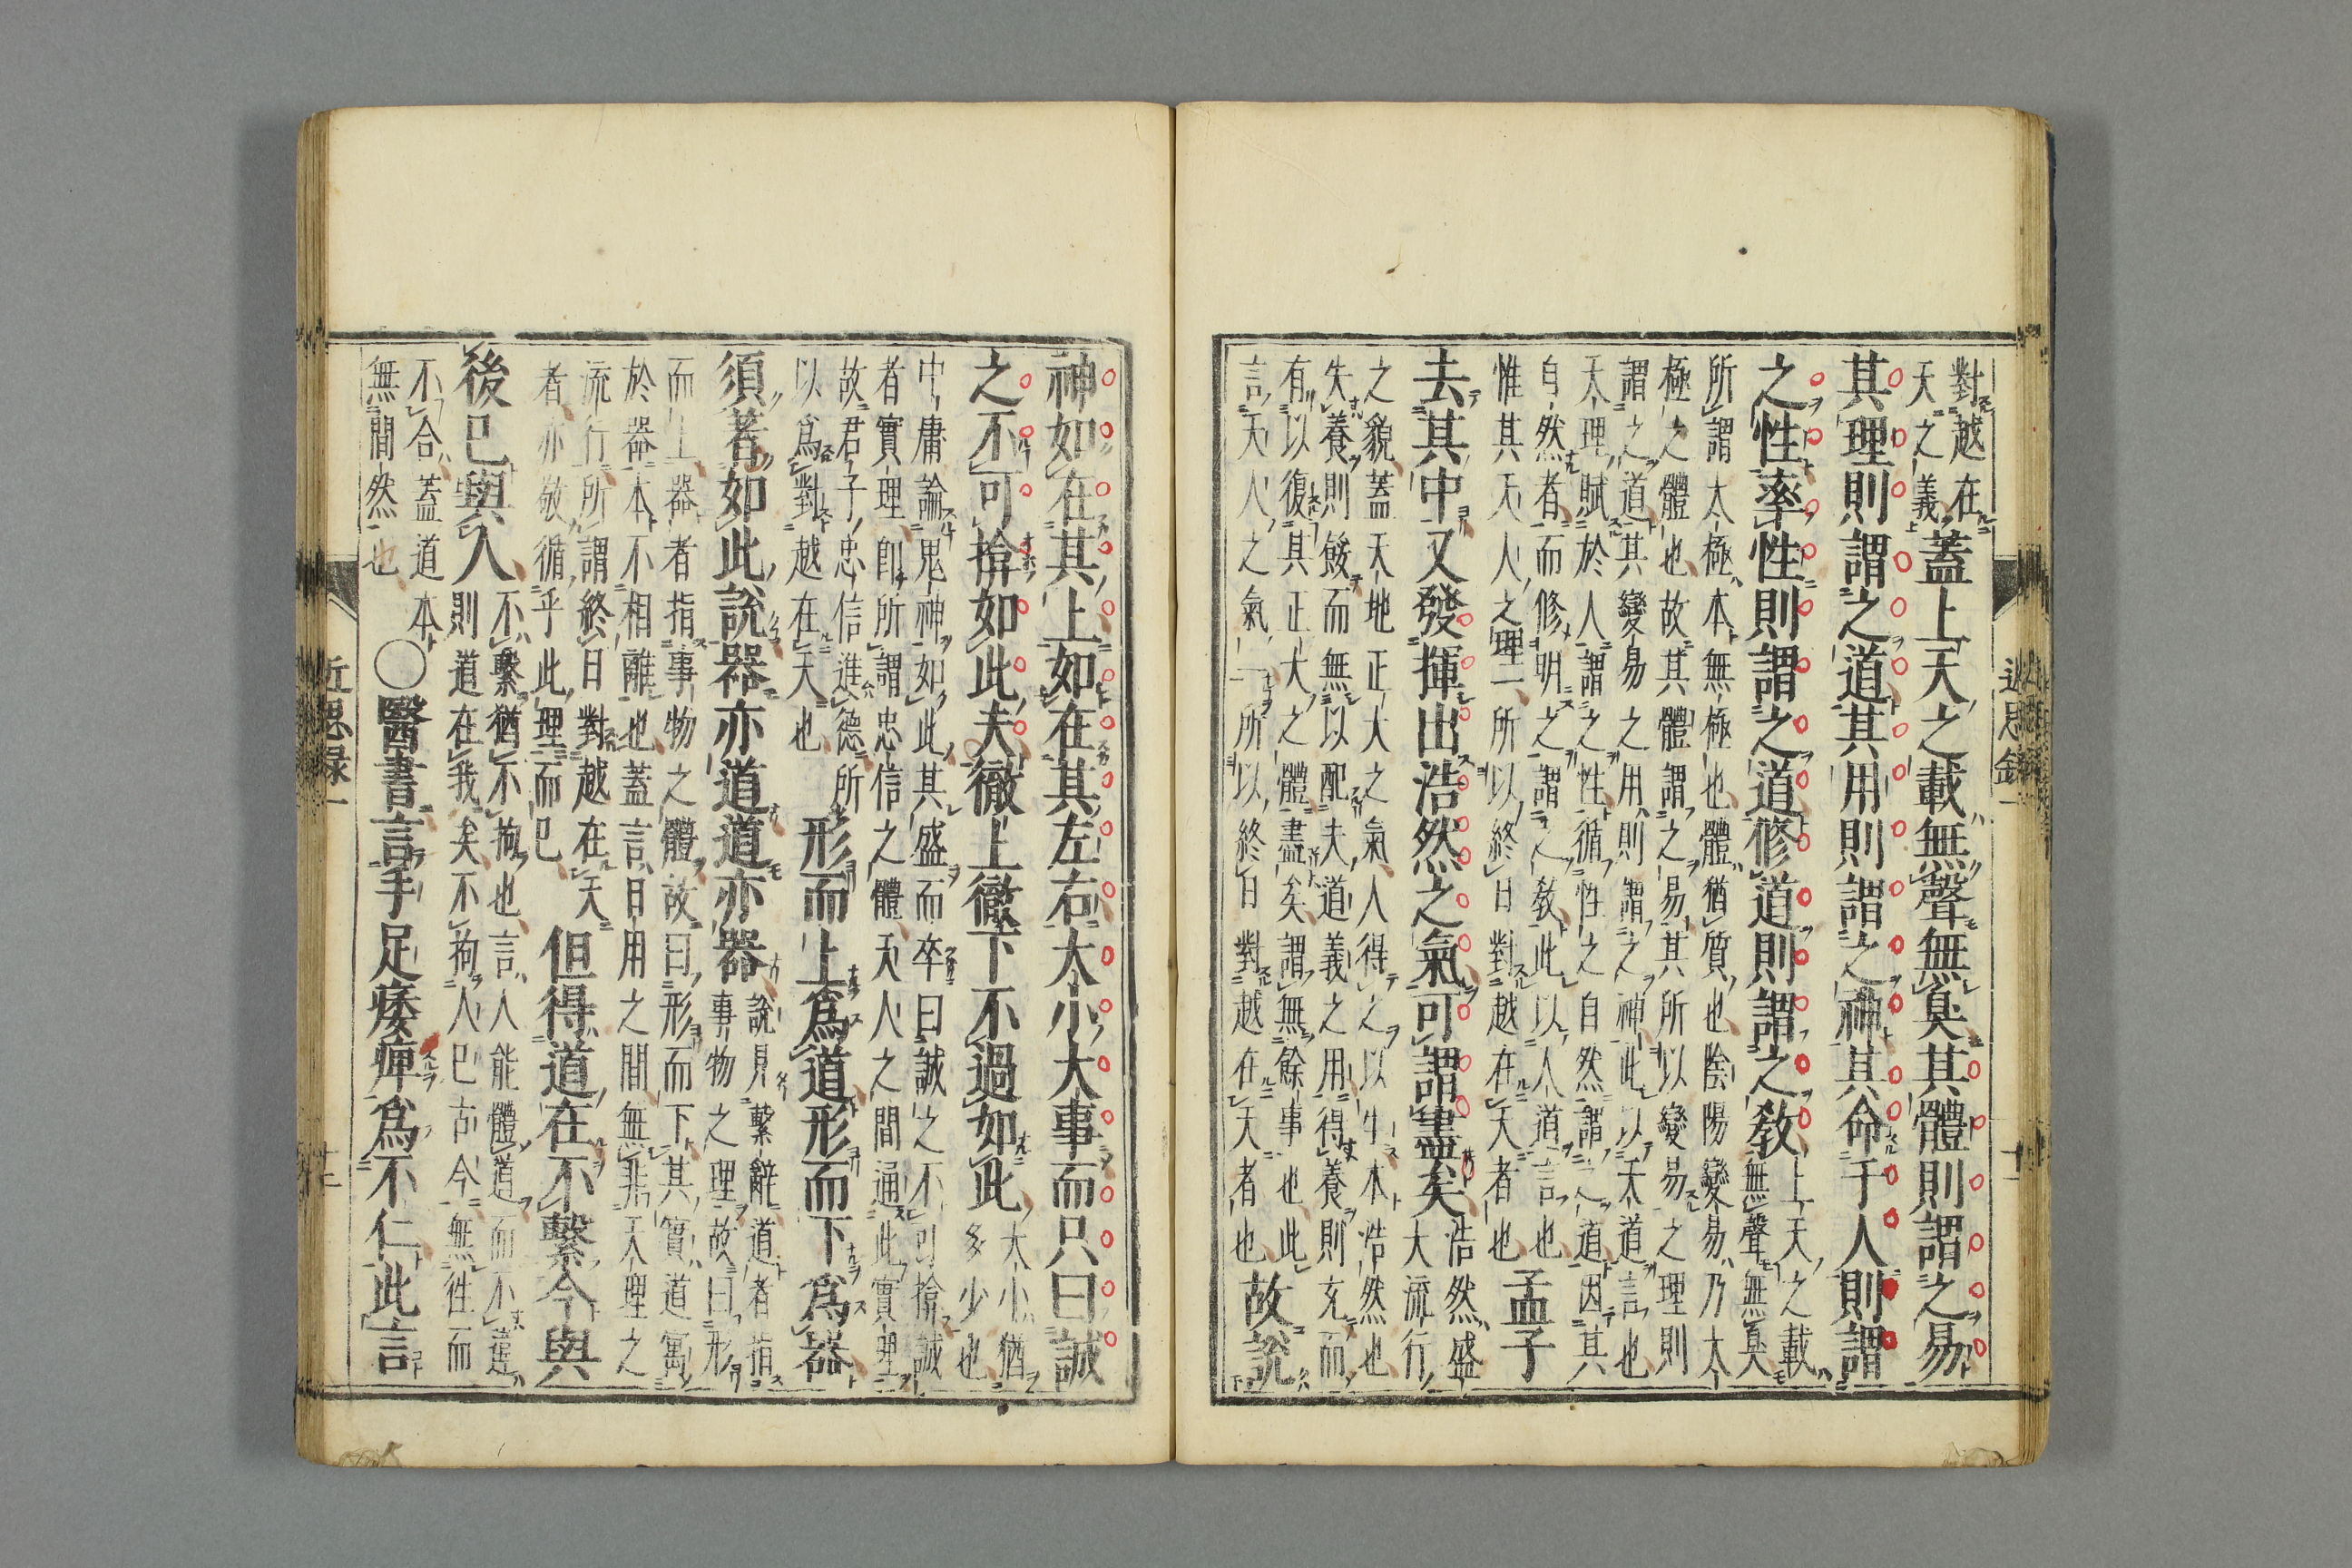 對越在
天之義
蓋上天之載無聲無臭其體則謂之易
其理則謂之道其用則謂之神其命于人則謂
之性率性則謂之道修道則謂之教
上天之載
無聲無臭
所謂太極本無極也體猶質也陰陽變易乃太
極之體也故其體謂之易其所以變易之理則
謂之道其變易之用則謂之神此以天道言也
天理賦於人謂之性循性之自然謂之道因其
自然者而修明之謂之教此以人道言也
惟其天人之理一所以終日對越在天者也
孟子
去其中又發揮出浩然之氣可謂盡矣
浩然盛
大流行
之貌蓋天地正大之氣人得之以生本浩然也
失養則餒而無以配夫道義之用得養則充而
有以復其正大之體盡矣謂無餘事也此
言天人之氣一所以終日對越在天者也
故說
神如在其上如在其左右大小大事而只曰誠
之不可揜如此夫徹上徹下不過如此
大小猶
多少也
中庸論鬼神如此其盛而卒曰誠之不可揜誠
者實理即所謂忠信之體天人之間通此實理
故君子忠信進德所
以爲對越在天也
形而上爲道形而下爲器
須著如此說器亦道道亦器
說見繫辭道者指
事物之理故曰形
而上器者指事物之體故曰形而下其實道寓
於器本不相離也蓋言日用之間無非天理之
流行所謂終日對越在天
者亦敬循乎此理而已
但得道在不繫今與
後已與人
不繫猶不拘也言人能體道而不違
則道在我矣不拘人已古今無徃而
不合蓋道本
無間然也
○醫書言手足痿痺爲不仁此言
近思録一
十二